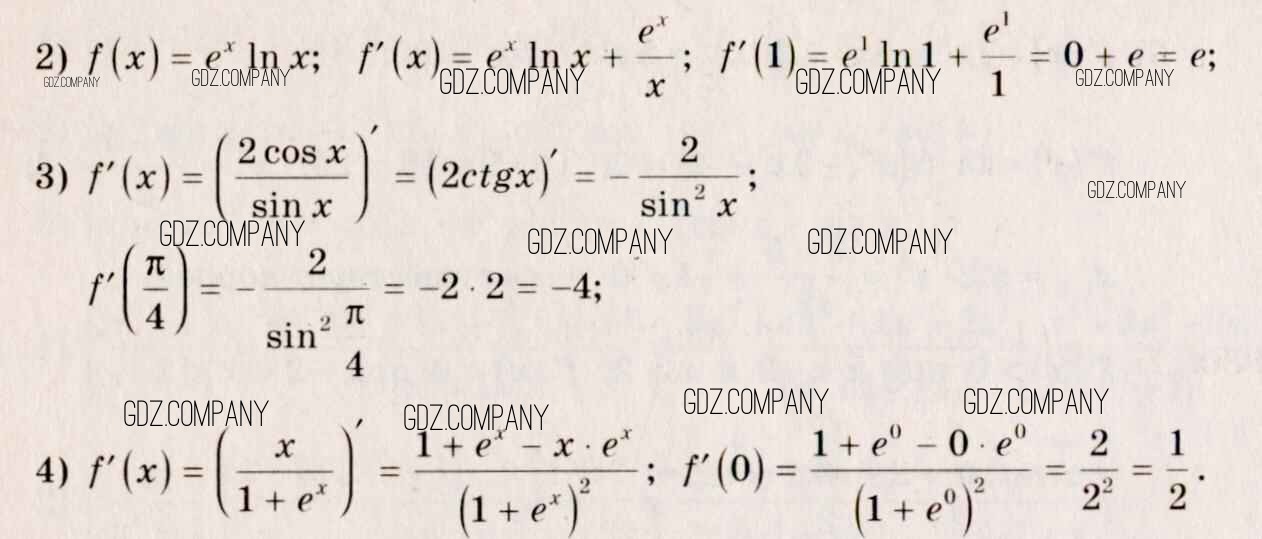 2) f(x) = eˣ ln x; f′(x) = eˣ ln x + eˣ/x; f′(1) = e¹ ln 1 + e¹/1 = 0 + e = e;
GDZ.COMPANY GDZ.COMPANY GDZ.COMPANY GDZ.COMPANY GDZ.COMPANY
3) f′(x) = (2 cos x / sin x)′ = (2ctgx)′ = − 2/sin² x;
GDZ.COMPANY
GDZ.COMPANY GDZ.COMPANY GDZ.COMPANY
f′(π/4) = − 2/sin² π/4 = −2 · 2 = −4;
GDZ.COMPANY GDZ.COMPANY GDZ.COMPANY GDZ.COMPANY
4) f′(x) = (x/(1 + eˣ))′ = (1 + eˣ − x · eˣ)/(1 + eˣ)²; f′(0) = (1 + e⁰ − 0 · e⁰)/(1 + e⁰)² = 2/2² = 1/2.